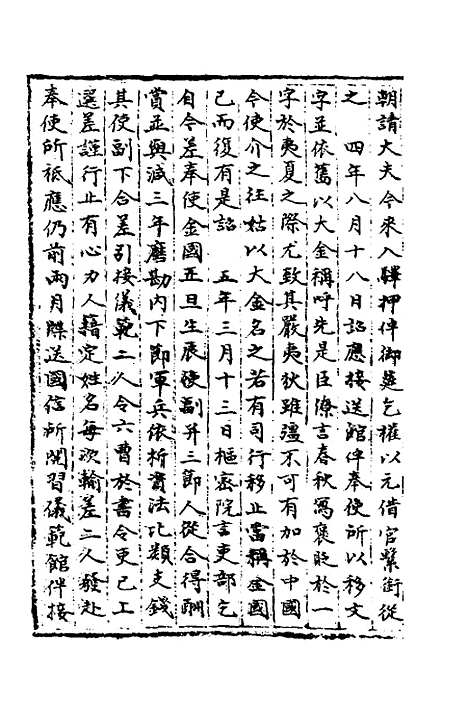 朝請大夫今來入驛押伴御筵乞權以元借官繫銜從
之　四年八月十八日詔應接送館伴奉使所以移文
字並依舊以大金稱呼先是臣僚言春秋寓褒貶於一
字於夷夏之際尤致其嚴夷狄雖彊不可有加於中國
令使介之往姑以大金名之若有司行移止當稱金國
已而復有是詔　五年三月十三日樞密院言吏部乞
自今差奉使金國正旦生辰使副并三節人從合得酬
賞並與減三年磨勘內下節軍兵依析資法比類支錢
其使副下合差引接儀範二人令六曹於書令吏已上
選差謹行止有心力人籍定姓名每次輪差二人發赴
奉使所祗應仍前兩月牒送國信所閱習儀範館伴接